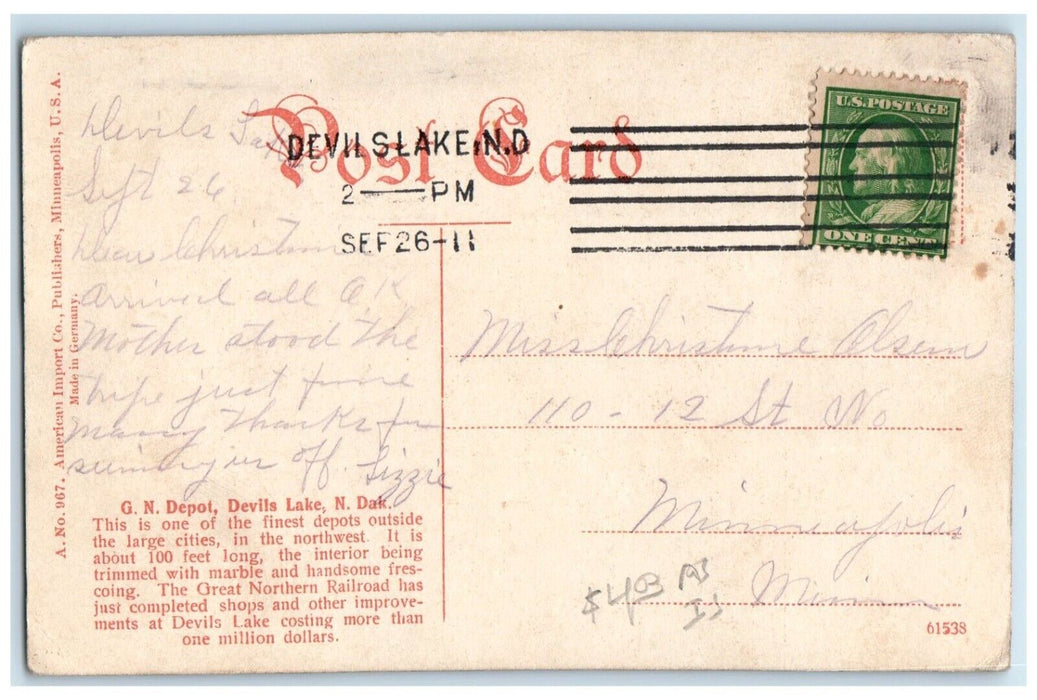 Post Card
DEVILS LAKE, N.D
2 PM
SEP 26-11
U.S. POSTAGE
ONE CENT
Devils Lake
Sept 26
Dear Christine
Arrived all O.K.
Mother stood the
tripe just fine
Many thanks for
seeing us off. Lizzie
Miss Christine Olsen
110 - 12 St No
Minneapolis
Minn
G. N. Depot, Devils Lake, N. Dak.
This is one of the finest depots outside
the large cities, in the northwest. It is
about 100 feet long, the interior being
trimmed with marble and handsome fres-
coing. The Great Northern Railroad has
just completed shops and other improve-
ments at Devils Lake costing more than
one million dollars.
A. No. 967. American Import Co., Publishers, Minneapolis, U. S. A.
Made in Germany.
$4.03 AS
IS
61538